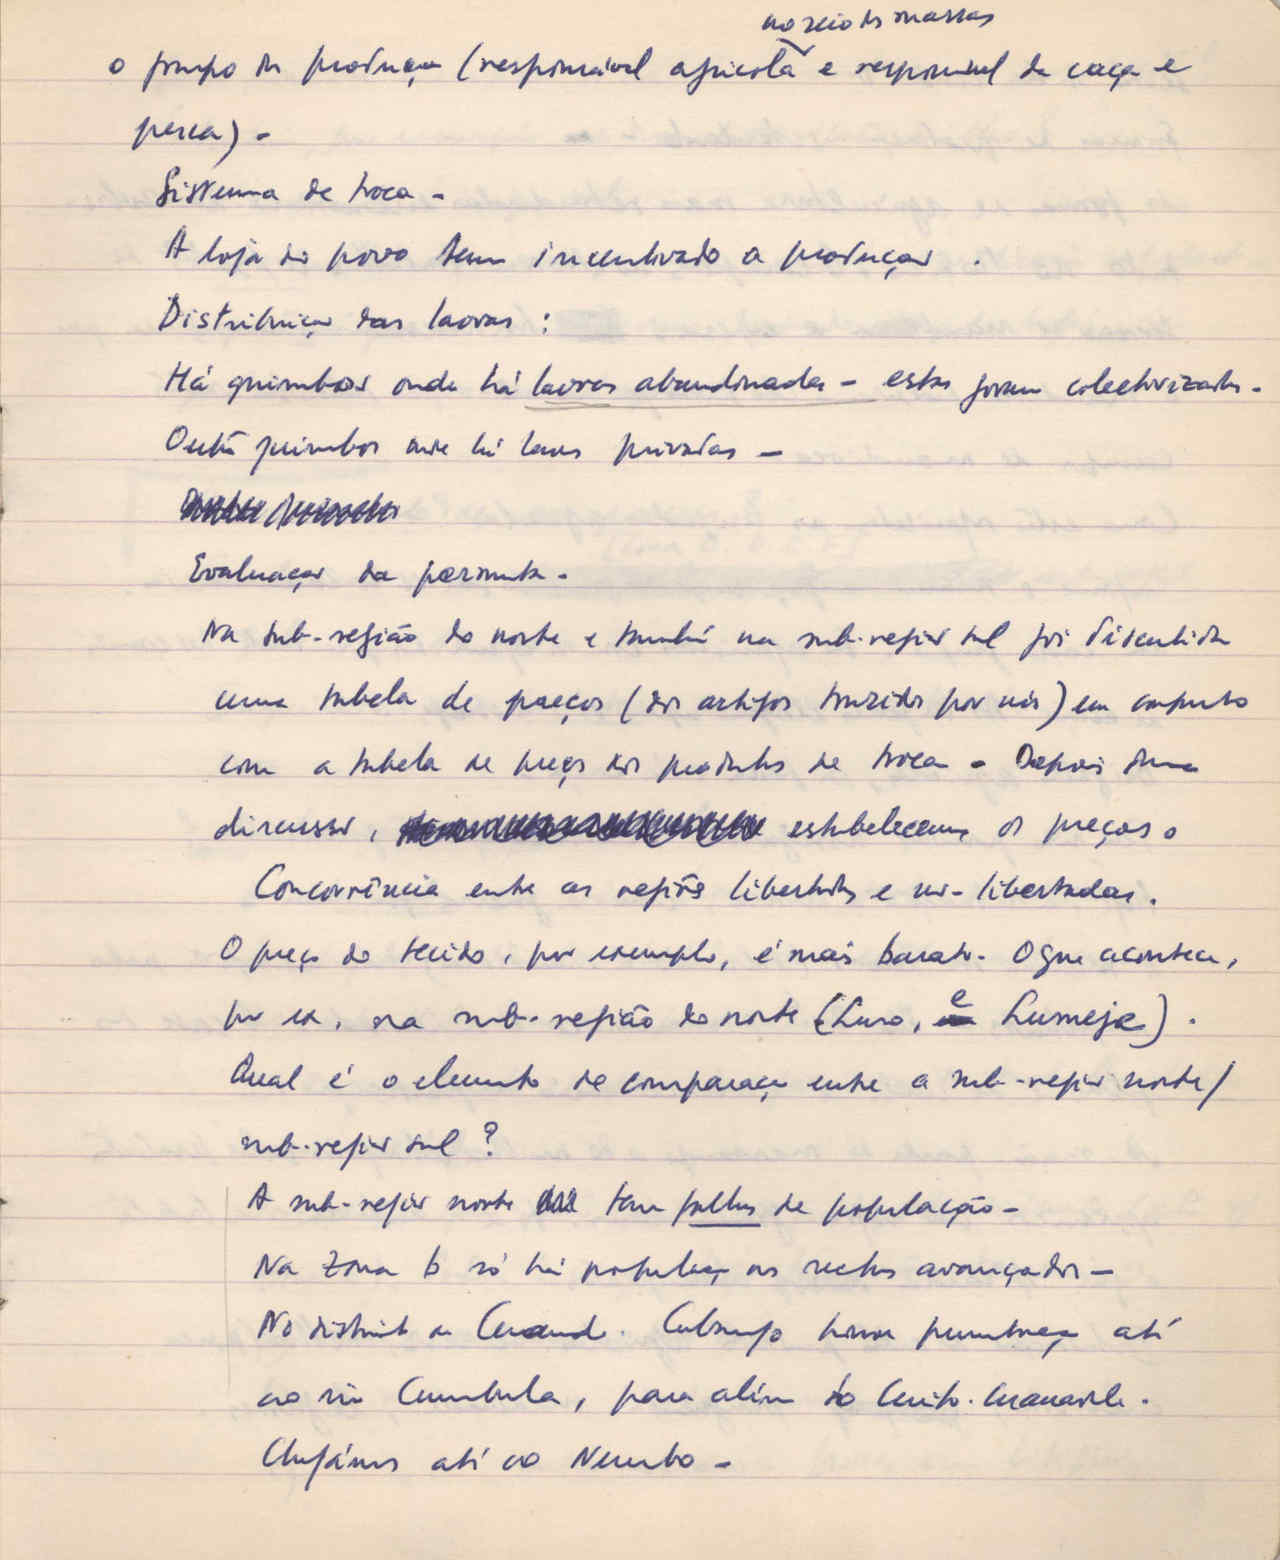 no seio das massas
o grupo de produção (responsável agrícola e responsável da caça e
pesca) -
Sistema de troca -
A loja do povo tem incentivado a produção .
Distribuição das lavras :
Há quimbos onde há lavras abandonadas - estas foram colectivizadas -
Outros quimbos onde há lavras privadas -
Evaluação da permuta -
Na sub-região do norte e também na sub-região sul foi discutida
uma tabela de preços (dos artigos trazidos por nós) em conjunto
com a tabela de preços dos produtos de troca - Depois duma
discussão, estabelecemos os preços.
Concorrência entre as regiões libertadas e não-libertadas.
O preço do tecido, por exemplo, é mais barato - O que acontece,
por ex, na sub-região do norte (Luso, e Lumeje) .
Qual é o elemento de comparação entre a sub-região norte/
sub-região sul ?
A sub-região norte tem falhas de população -
Na Zona b só há população nos sectores avançados -
No distrito do Cuando-Cubango houve penetração até
ao rio , para além do Cuito-Cuanavale .
Chegámos até ao Nembo -